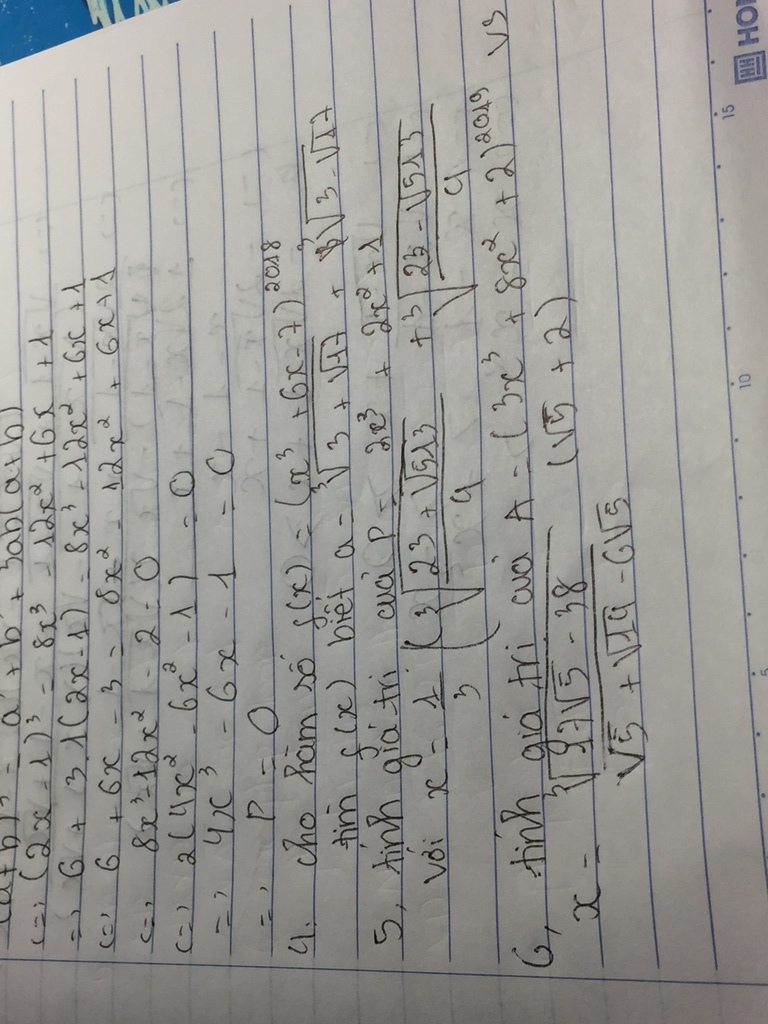 (a+b)³ = a³ + b³ + 3ab(a+b)
<=> (2x - 1)³ = 8x³ - 12x² + 6x + 1
=> 6 + 3.1(2x-1) = 8x³ - 12x² + 6x + 1
<=> 6 + 6x - 3 = 8x² - 12x² + 6x + 1
<=> 8x³ - 12x² - 2 = 0
<=> 2(4x² - 6x² - 1) = 0
=> 4x³ - 6x - 1 = 0
=> P = 0
4. Cho hàm số f(x) = (x³ + 6x - 7)²⁰¹⁸
tìm f(x) biết a = ∛(3 + √17) + ∛(3 - √17)
5, tính giá trị của P = 2x³ + 2x² + 1
với x = 1/3 (∛((23 + √513)/4) + ∛((23 - √513)/4)
6, tính giá trị của A = (3x³ + 8x² + 2)²⁰¹⁹ vs
x = ∛(17√5 - 38) (√5 + 2)
√5 + √14 - 6√5
5 10 15
HH HO